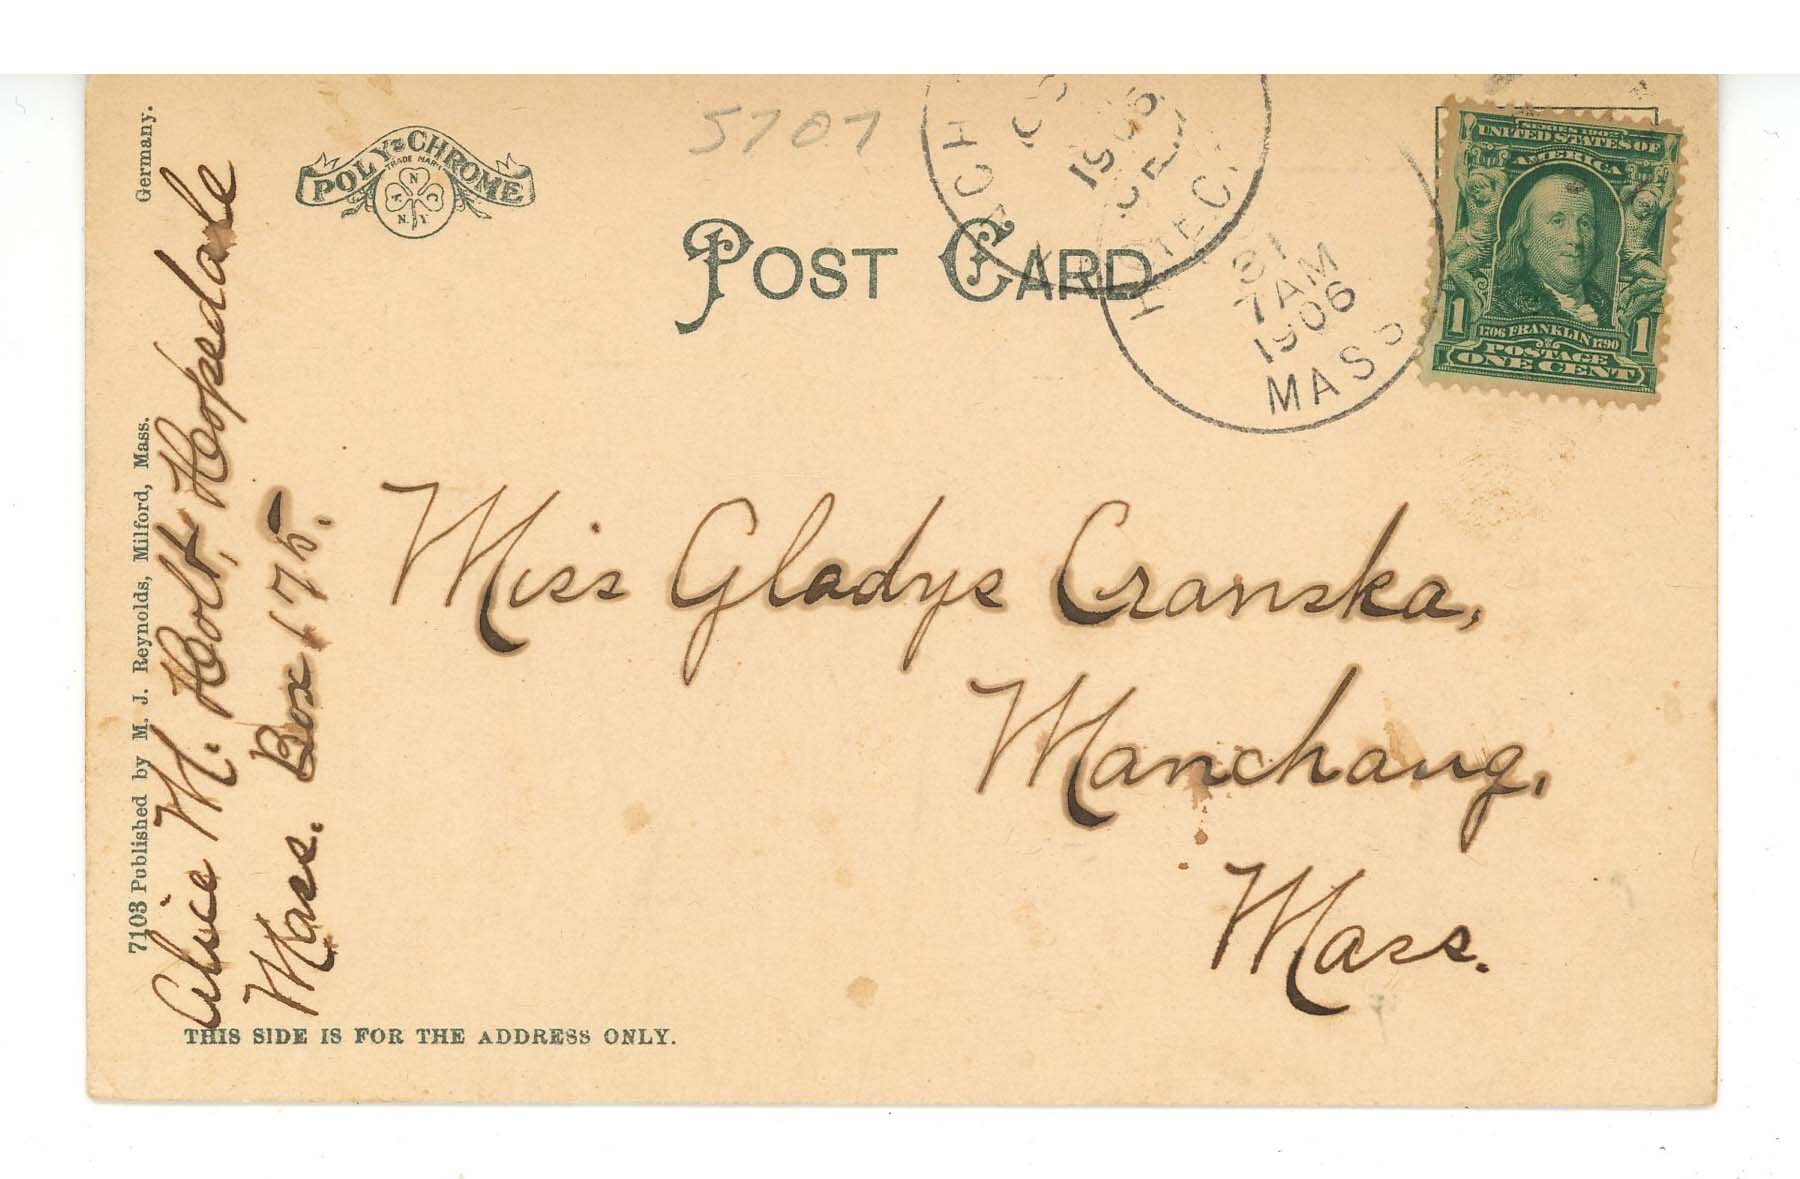 5707
POLY-CHROME
TRADE MARK
N
A C
N.Y.
POST CARD
1906
REC'D
31
7 AM
1906
MASS
SERIES 1902
UNITED STATES OF
AMERICA
1706 FRANKLIN 1790
POSTAGE
1 1
ONE CENT
Miss Gladys Cranska,
Manchaug,
Mass.
7103 Published by M. J. Reynolds, Milford, Mass. Germany.
Alice M. Holt, Hopedale
Mass. Box 175.
THIS SIDE IS FOR THE ADDRESS ONLY.